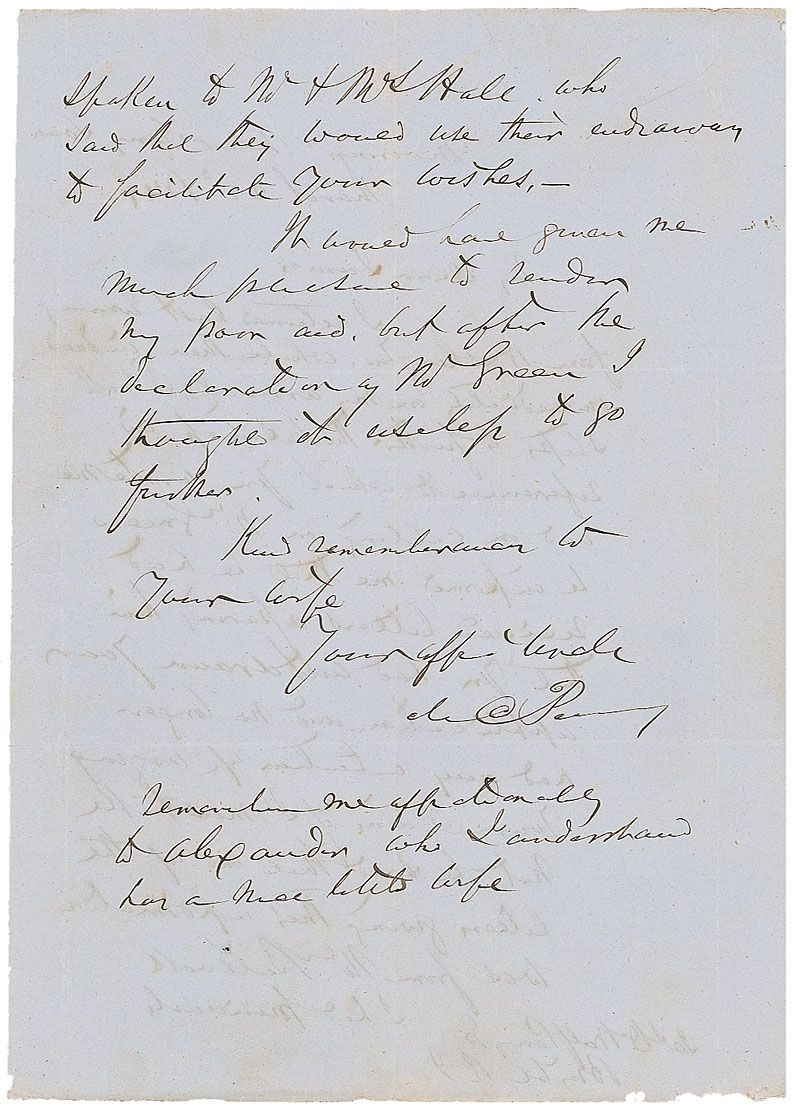 spoken to Mr & Mrs Hale. who
said that they would use their endeavour
to facilitate your wishes, —
It would have given me
much pleasure to render
my poor aid, but after the
declaration of Mr Green I
thought it useless to go
further.
Kind remembrances to
your wife
Your affe Uncle
M C Perry
remember me affectionately
to Alexander who I understand
has a nice little wife